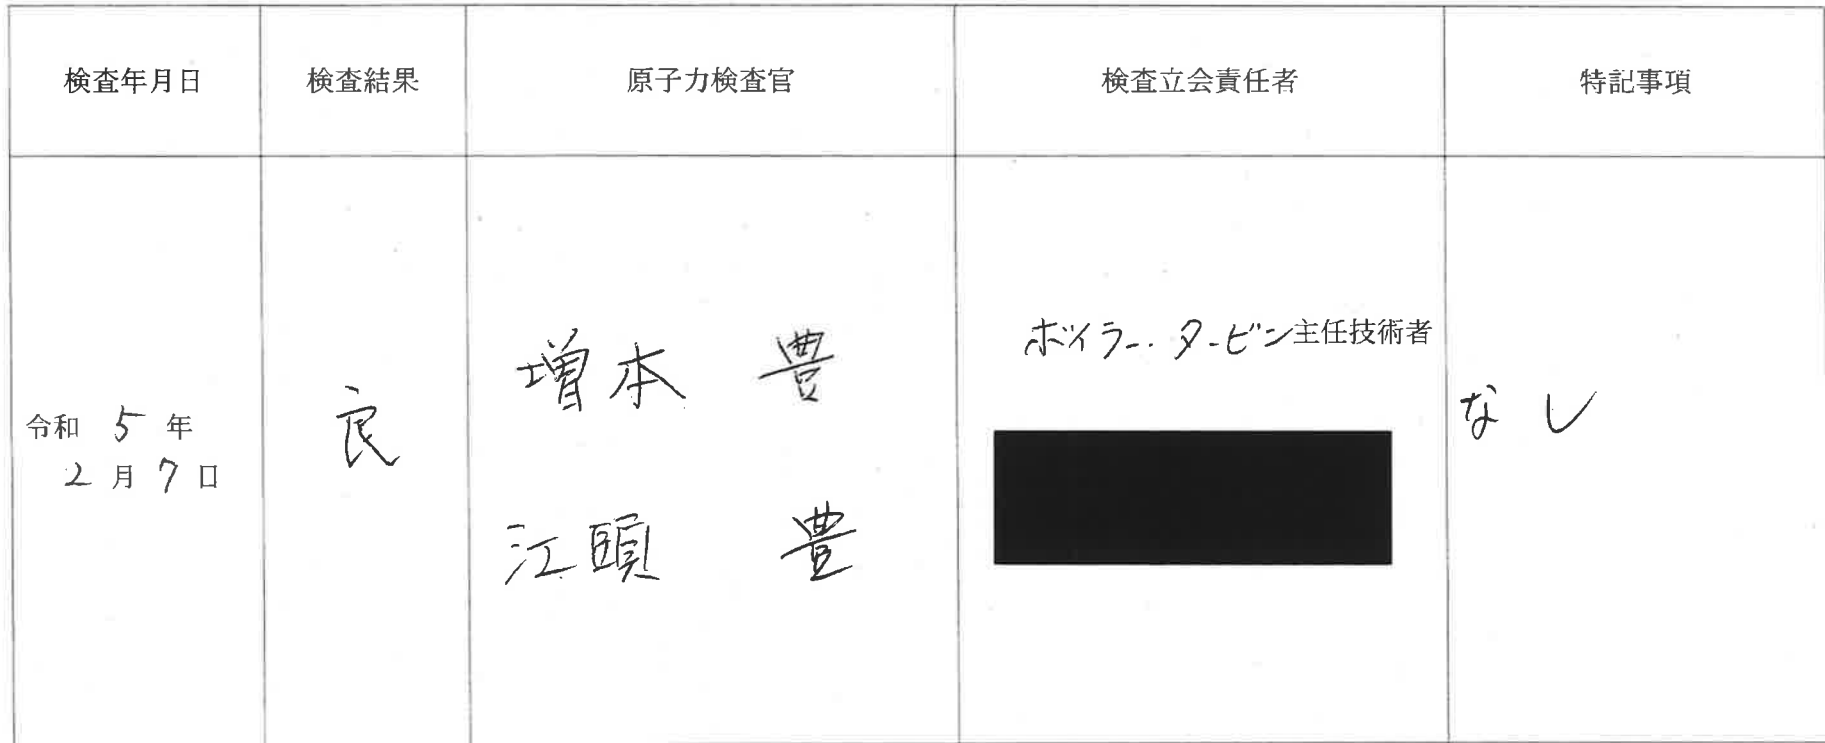 検査年月日 検査結果 原子力検査官 検査立会責任者 特記事項
令和 5 年
2 月 7 日
良
増本 豊
江頭 豊
ボイラー・タービン主任技術者
なし